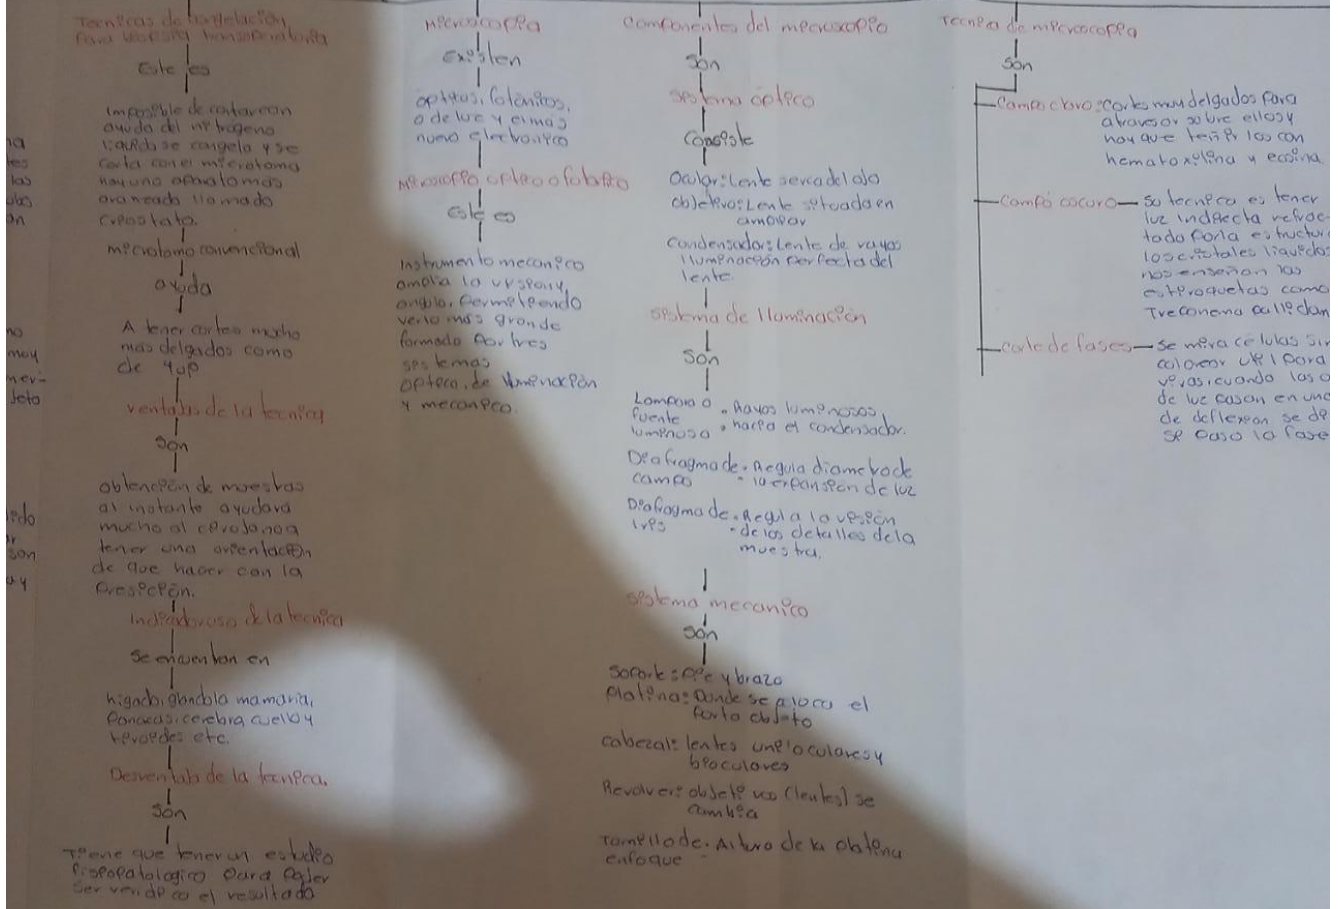 na
tes
las
on
no
moy
ido
son
ay
Tecnicas de congelación
Para biopsia transoperatoria
Este es
Imposible de cortar con
ayuda del nitrogeno
liquido se congela y se
corta con el microtomo
hay uno aparato mas
llamado
creostato.
microtomo convencional
ayuda
A tener cortes mucho
mas delgados como
de 4up
ventajas de la tecnica
Son
obtención de muestras
al instante ayudara
mucho al cirojano a
tener una orientación
de que hacer con la
presición.
de la tecnica
Se encuentran en
higado, glandola mamaria,
cuello y
tiroides etc.
de la tecnica.
Son
Tiene que tener un estudio
para poder
ser el resultado
microscopia
Existen
opticos, fotonicos,
o de luz y el mas
nuevo electronico
microscopio optico o
Este es
Instrumento mecanico
amplia la
angulo, permitiendo
verlo mas grande
formado por tres
sistemas
optico, de iluminación
y mecanico.
Componentes del microscopio
Son
sistema óptico
Consiste
Ocular: Lente serca del ojo
objetivo: Lente situada en
condensador: Lente de rayos
Iluminación perfecta del
lente
sistema de Iluminación
Son
Lampara o
fuente
luminosa
• Rayos luminosos
• hacia el condensador.
Diafragma de
campo
• Regula diametro de
- la expansión de luz
Diafragma de
iris
• Regula la visión
- de los detalles de la
muestra.
sistema mecanico
Son
Soporte: pie y brazo
Platina: Donde se el
porta objeto
cabezal: lentes y
bioculares
Revolver: (lentes) se
cambia
Tornillo de
enfoque
• Altura de la
Tecnica de microscopia
Son
Campo claro: cortes muy delgados para
atravesar sobre ellos y
hay que teñir los con
hematoxilina y eosina
Campo oscuro — su tecnica es tener
luz indirecta
tado por la
los cristales liquidos
nos enseñan las
como
corte de fases — se mira celulas sin
colorear util para
vivas, cuando las o
de luz pasan en una
de deflexion se de
se paso la fase